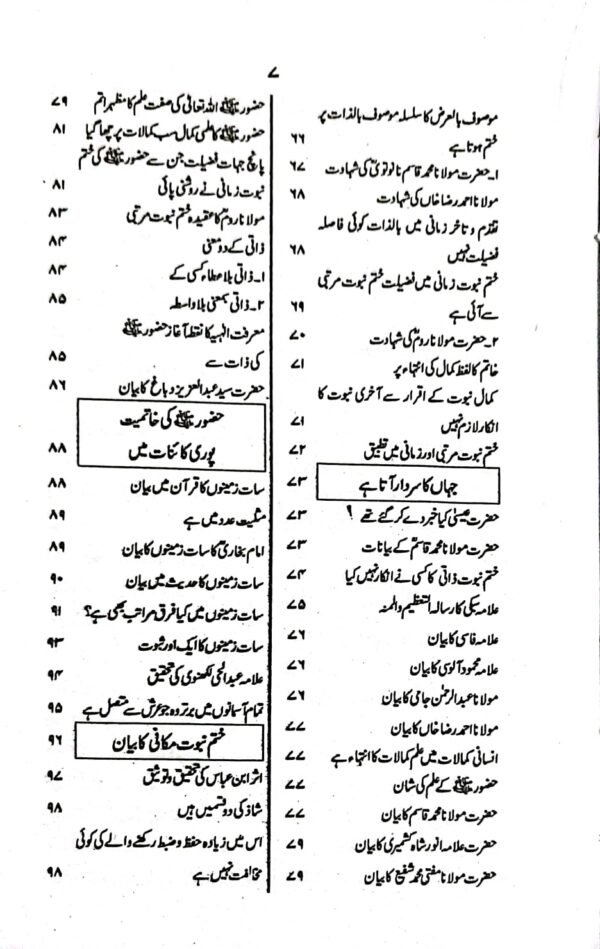 ۷
موصوف بالعرض کا سلسلہ موصوف بالذات پر
ختم ہوتا ہے ۶۶
۱۔ حضرت مولانا محمد قاسم نانوتویؒ کی شہادت ۶۷
مولانا احمد رضا خاں کی شہادت ۶۸
تقدم و تاخر زمانی میں بالذات کوئی فاصلہ
فضیلت نہیں ۶۸
ختم نبوت زمانی میں فضیلت ختم نبوت مرتبی
سے آئی ہے ۶۹
۲۔ حضرت مولانا رومؒ کی شہادت ۷۰
خاتم کا لفظ کمال کی انتہاء پر ۷۱
کمال نبوت کے اقرار سے آخری نبوت کا
انکار لازم نہیں ۷۱
ختم نبوت مرتبی اور زمانی میں تطبیق ۷۲
جہاں کا سردار آتا ہے ۷۳
حضرت عیسیٰؑ کیا خبر دے کر گئے تھے ؟ ۷۳
حضرت مولانا محمد قاسمؒ کے بیانات ۷۳
ختم نبوت ذاتی کا کسی نے انکار نہیں کیا ۷۴
علامہ سبکی کا رسالہ التعظیم والمنہ ۷۵
علامہ فاسی کا بیان ۷۶
علامہ محمود آلوسی کا بیان ۷۶
مولانا عبدالرحمٰن جامی کا بیان ۷۶
مولانا احمد رضا خاں کا بیان ۷۷
انسانی کمالات میں علم کمالات کا انتہاء ہے ۷۷
حضور ﷺ کے علم کی شان ۷۷
حضرت مولانا محمد قاسم کا بیان ۷۷
حضرت علامہ انور شاہ کشمیریؒ کا بیان ۷۹
حضرت مولانا مفتی محمد شفیعؒ کا بیان ۷۹
حضور ﷺ اللہ تعالیٰ کی صفت علم کا مظہر اتم ۷۹
حضور ﷺ کا علمی کمال سب کمالات پر چھا گیا ۸۱
پانچ جہات فضیلت جن سے حضور ﷺ کی ختم
نبوت زمانی نے روشنی پائی ۸۱
مولانا رومؒ کا عقیدہ ختم نبوت مرتبی ۸۳
ذاتی کے دو معنی ۸۴
۱۔ ذاتی بلا عطاء کسی کے ۸۴
۲۔ ذاتی بمعنی بلا واسطہ ۸۵
معرفت الٰہیہ کا نقطہ آغاز حضور ﷺ
کی ذات سے ۸۵
حضرت سید عبدالعزیز دباغ کا بیان ۸۶
حضور ﷺ کی خاتمیت
پوری کائنات میں ۸۸
سات زمینوں کا قرآن میں بیان ۸۸
مثلیت عدد میں ہے ۸۹
امام بخاریؒ کا سات زمینوں کا بیان ۸۹
سات زمینوں کا حدیث میں بیان ۹۰
سات زمینوں میں کیا فرق مراتب بھی ہے؟ ۹۱
سات زمینوں کا ایک اور ثبوت ۹۳
علامہ عبدالحئی لکھنوی کی تحقیق ۹۴
تمام آسمانوں میں برتر وہ جو عرش سے متصل ہے ۹۵
ختم نبوت مکانی کا بیان ۹۶
اثر ابن عباس کی تحقیق و توثیق ۹۷
شاذ کی دو قسمیں ہیں ۹۸
اس میں زیادہ حفظ و ضبط رکھنے والے کی کوئی
مخالفت نہیں ہے ۹۸